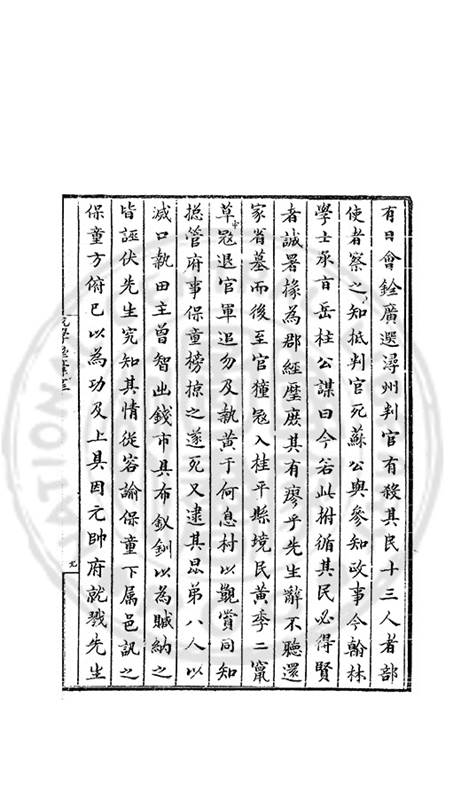 有日會銓廣選潯州判官有殺其民十三人者部
使者察之知抵判官死蘇公與參知政事今翰林
學士承旨岳柱公謀曰今若此拊循其民必得賢
者誠署掾為郡經歷庶其有廖乎先生辭不聽還
家省墓而後至官獞冦入桂平縣境民黃季二竄
草中冦退官軍追勿及執黃于何息村以覬賞同知
摠管府事保童搒掠之遂死又逮其昆弟八人以
滅口執田主曾智出錢市具布釵釧以為贓納之
皆誣伏先生究知其情從容諭保童下屬邑訊之
保童方俯已以為功及上具因元帥府就戮先生
九